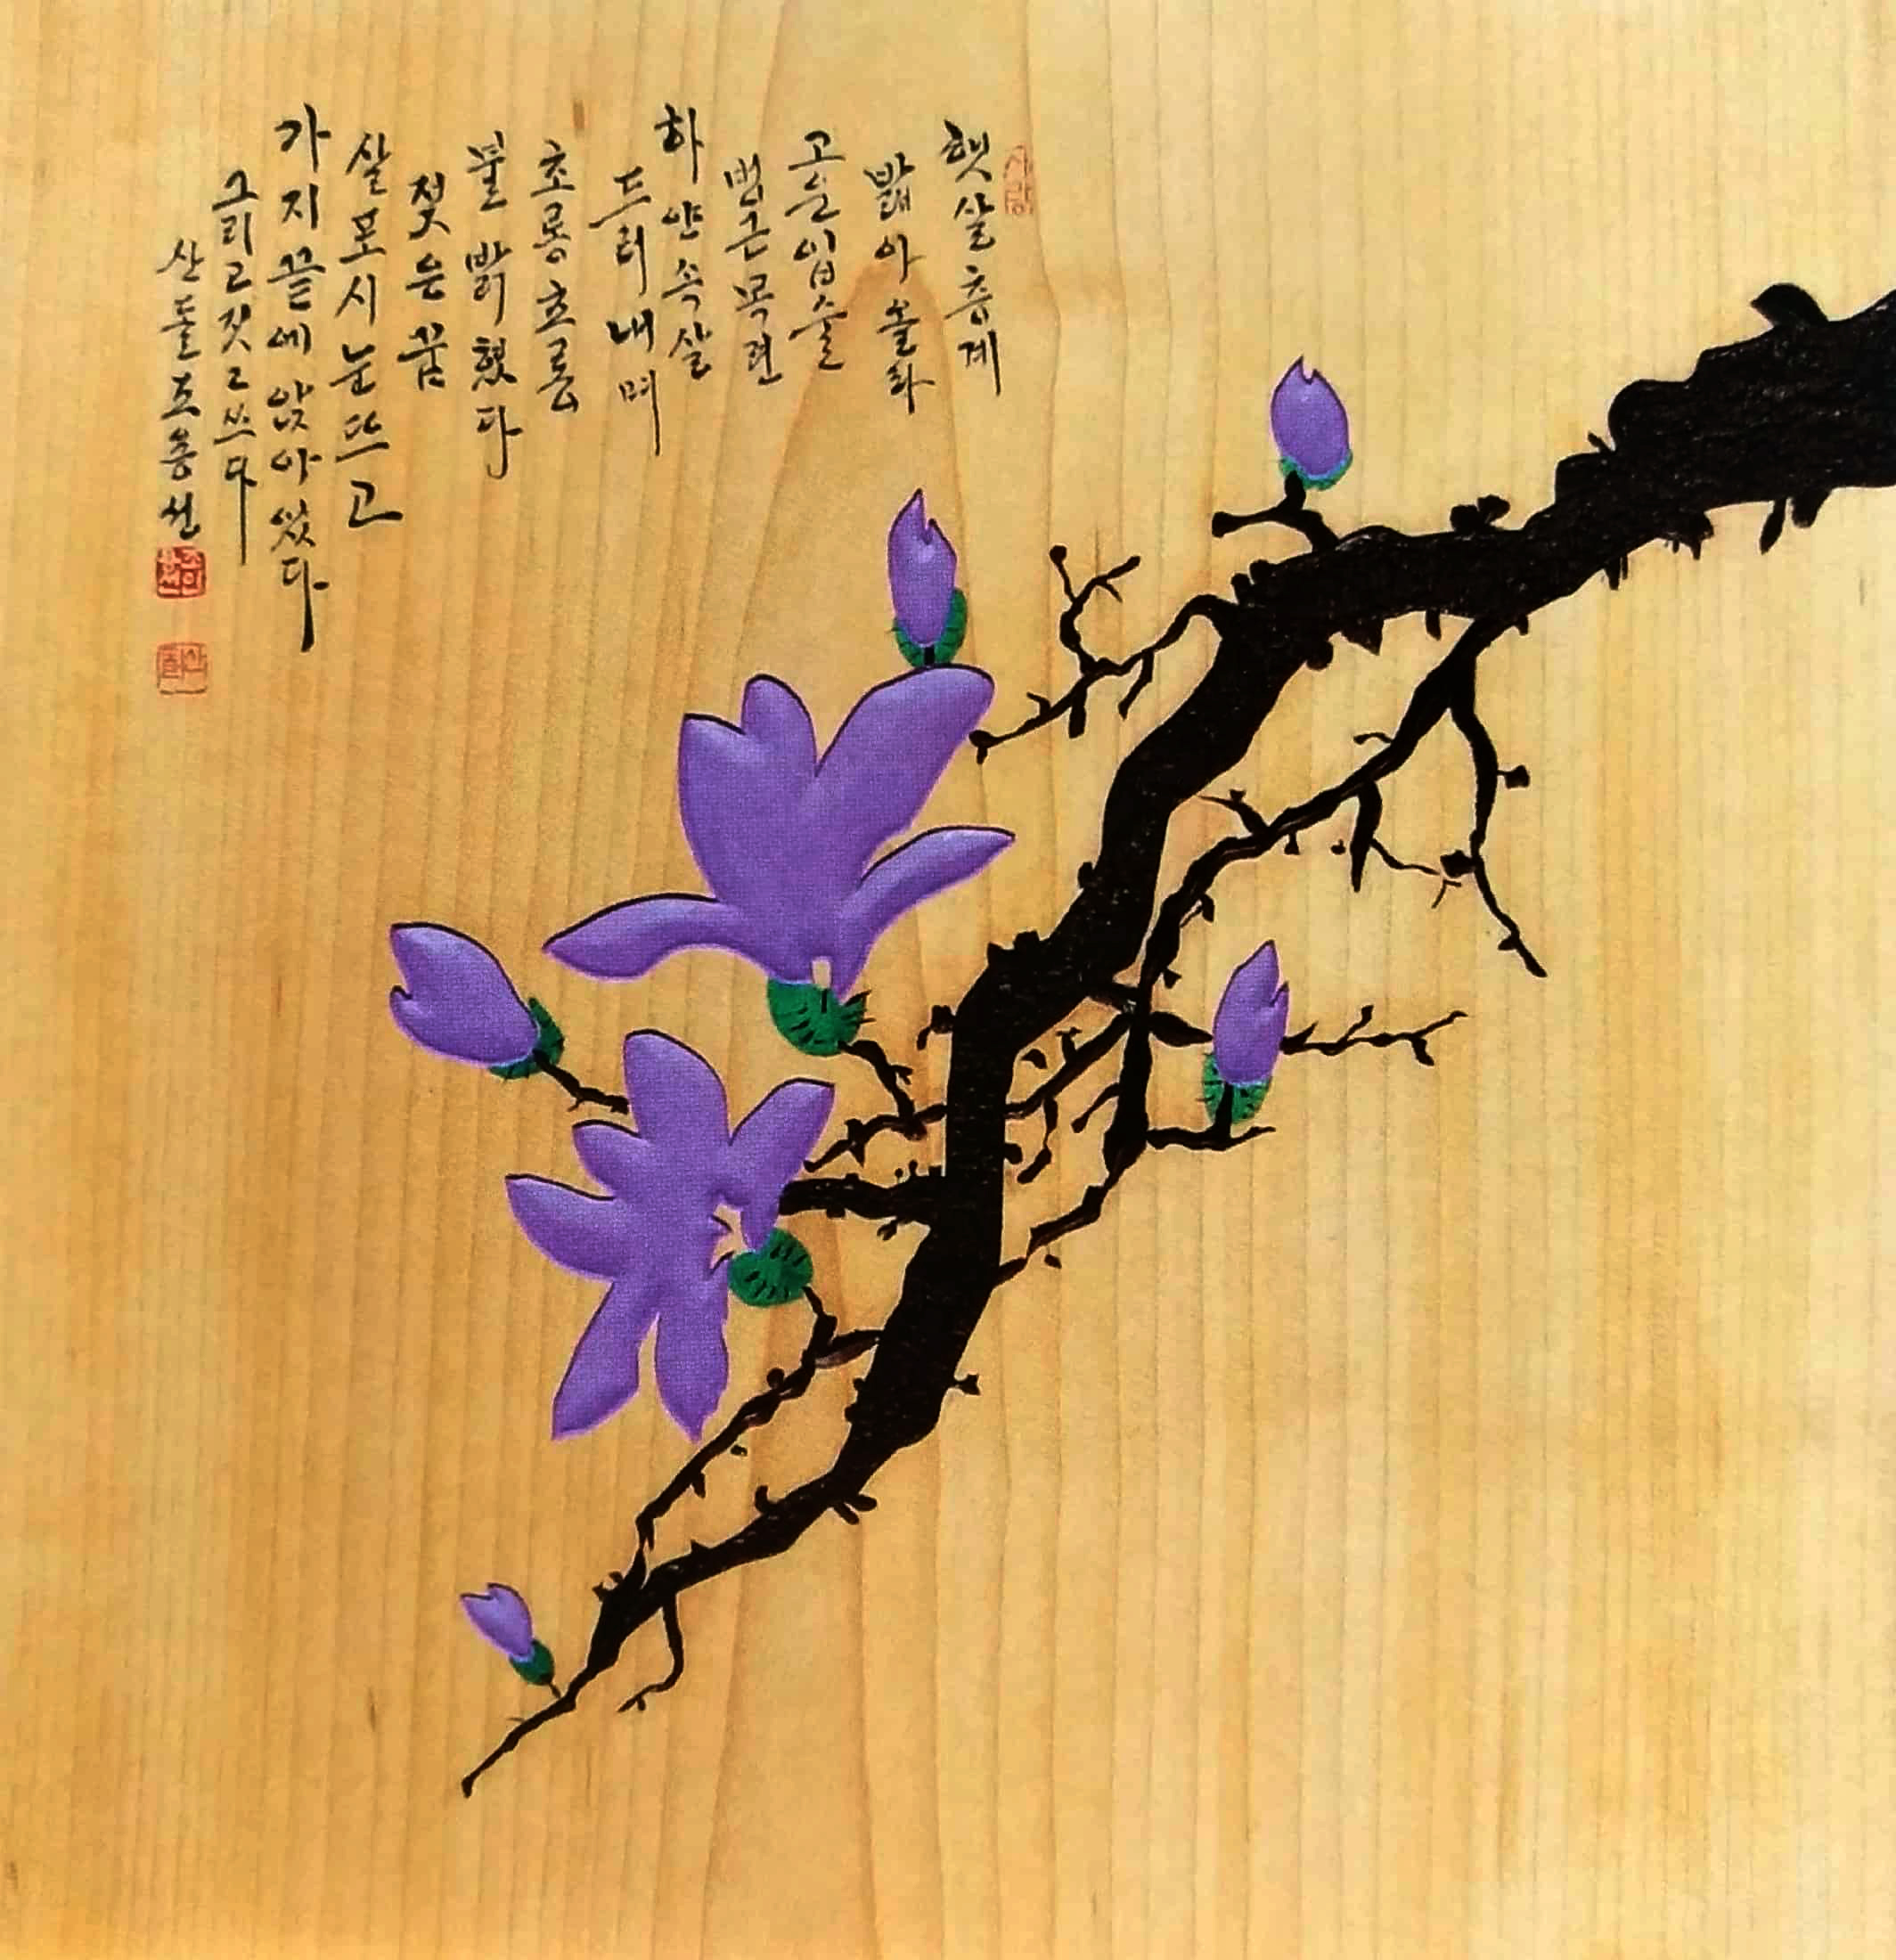 사랑
햇살 층계
밟아 올라
고운 입술
벙근 목련
하얀 속살
드러내며
초롱초롱
불 밝혔다
젖은 꿈
살포시 눈뜨고
가지 끝에 앉아 있다
그리고 짓고 쓰다
산돌 조용선